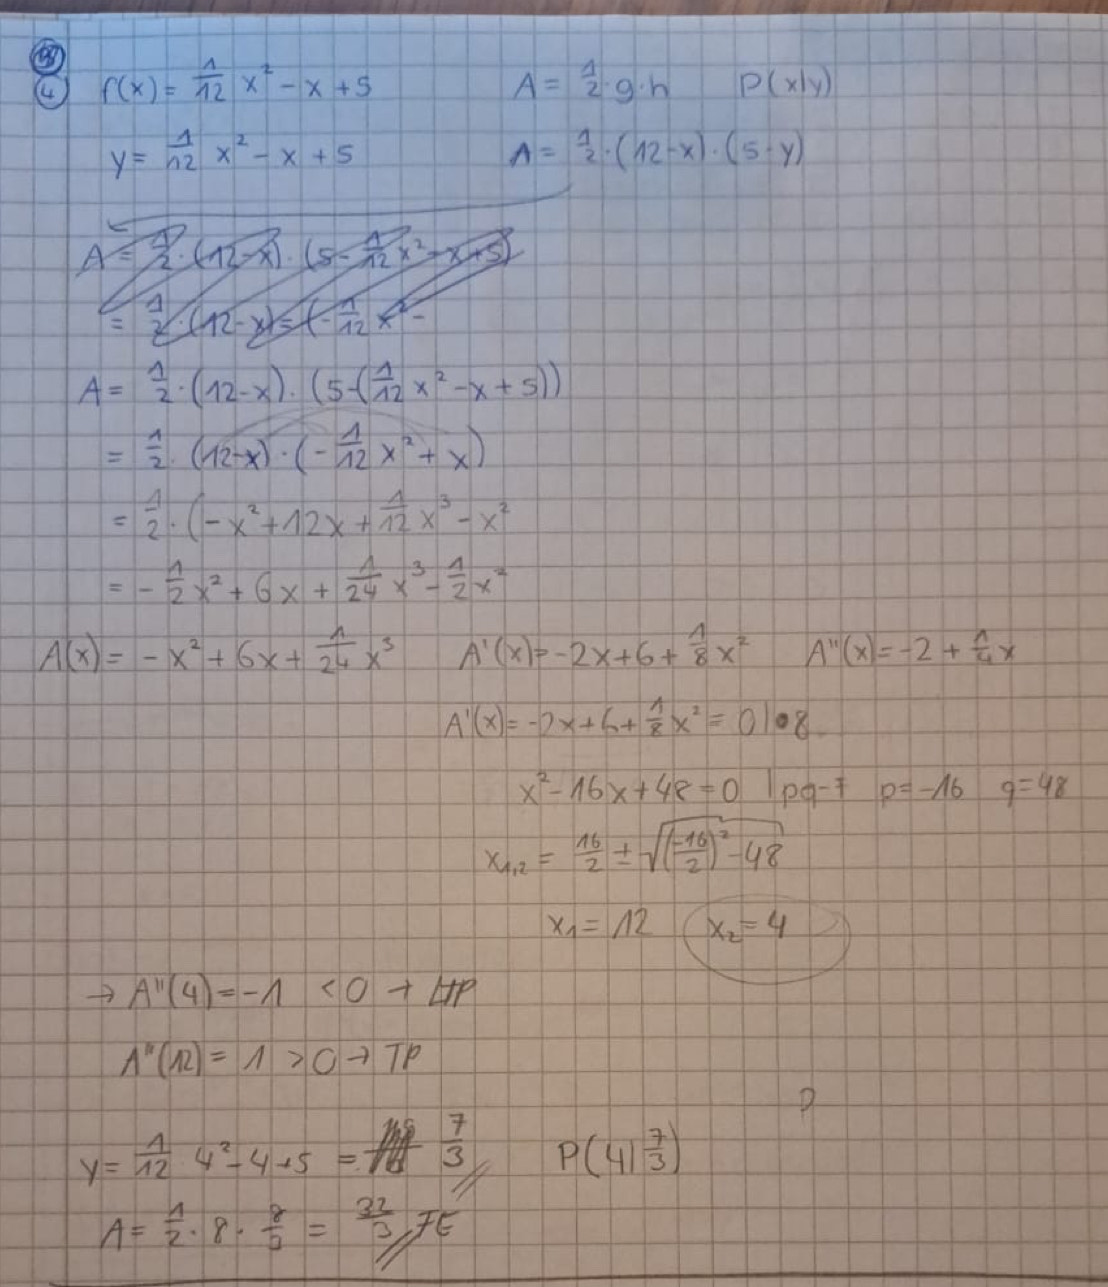 ④ f(x) = 1/12 x² - x + 5 A = 1/2 · g · h P(x|y)
y = 1/12 x² - x + 5 A = 1/2 · (12-x) · (5-y)
A = 1/2 · (12-x) · (5 - 1/12 x² - x + 5)
= 1/2 · (12-x) = (-1/12 x² -
A = 1/2 · (12-x) · (5-(1/12 x² - x + 5))
= 1/2 · (12-x) · (-1/12 x² + x)
= 1/2 · (-x² + 12x + 1/12 x³ - x²
= -1/2 x² + 6x + 1/24 x³ - 1/2 x²
A(x) = -x² + 6x + 1/24 x³ A'(x) = -2x + 6 + 1/8 x² A''(x) = -2 + 1/4 x
A'(x) = -2x + 6 + 1/8 x² = 0 | • 8
x² - 16x + 48 = 0 | pq-7 p = -16 q = 48
x₁,₂ = 16/2 ± √((-16/2)² - 48
x₁ = 12 x₂ = 4
→ A''(4) = -1 < 0 → HP
A''(12) = 1 > 0 → TP
?
y = 1/12 4² - 4 + 5 = 7/3 P(4|7/3)
A = 1/2 · 8 · 8/3 = 32/3 FE